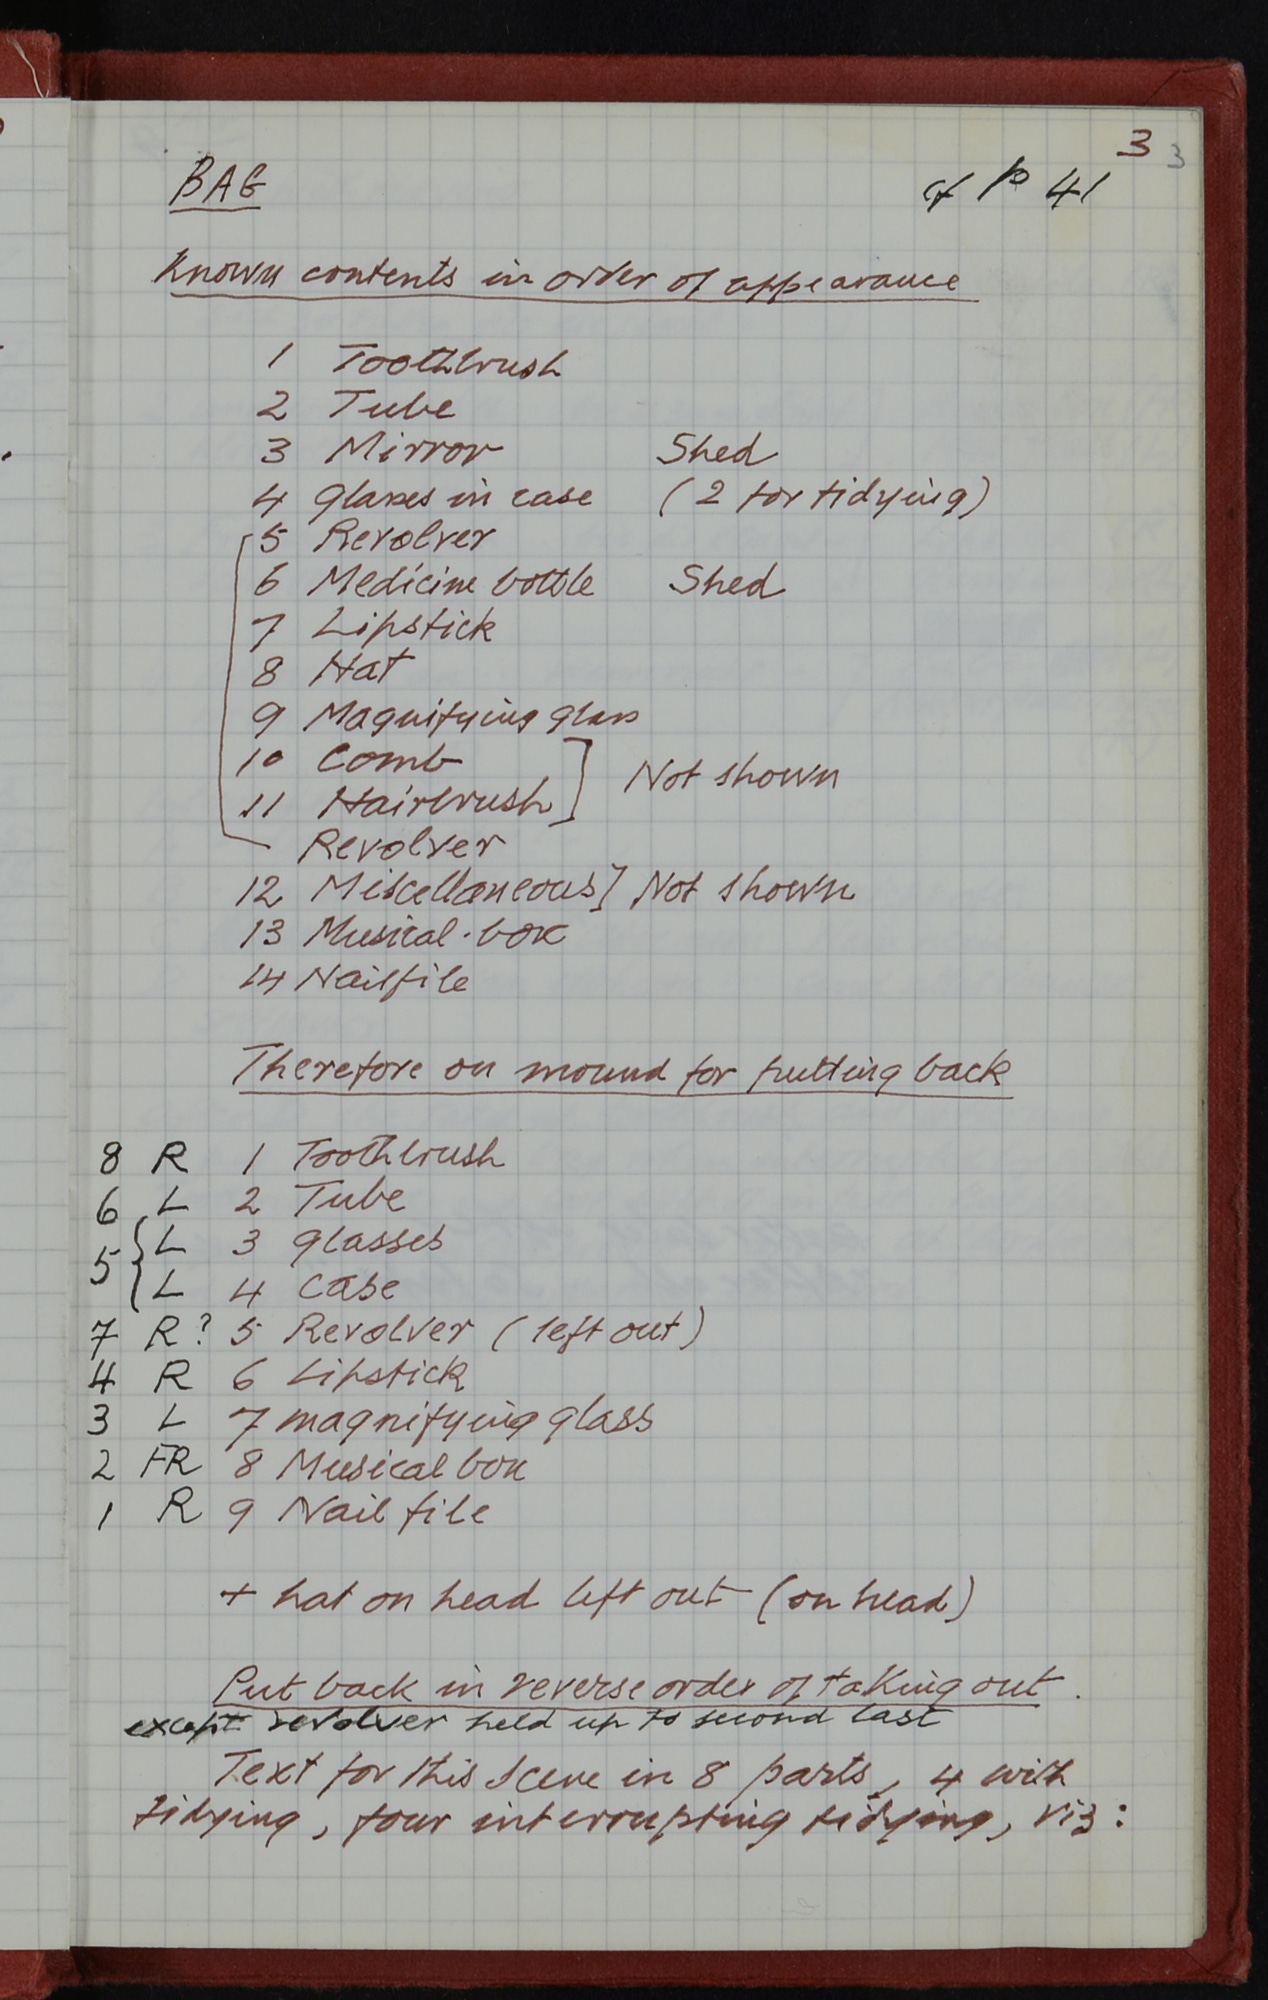 3 3
BAG cf p 41
Known contents in order of appearance
1 Toothbrush
2 Tube
3 Mirror Shed
4 glasses in case (2 for tidying)
5 Revolver
6 Medicine bottle Shed
7 Lipstick
8 Hat
9 Magnifying glass
10 Comb
11 Hairbrush ] Not shown
Revolver
12 Miscellaneous ] Not shown
13 Musical-box
14 Nailfile
Therefore on mound for putting back
8 R 1 Toothbrush
6 L 2 Tube
5 { L 3 glasses
L 4 case
7 R? 5 Revolver (left out)
4 R 6 Lipstick
3 L 7 magnifying glass
2 FR 8 Musical box
1 R 9 Nail file
+ hat on head left out (on head)
Put back in reverse order of taking out.
except revolver held up to second last
Text for this scene in 8 parts, 4 with
tidying, four interrupting tidying, viz: